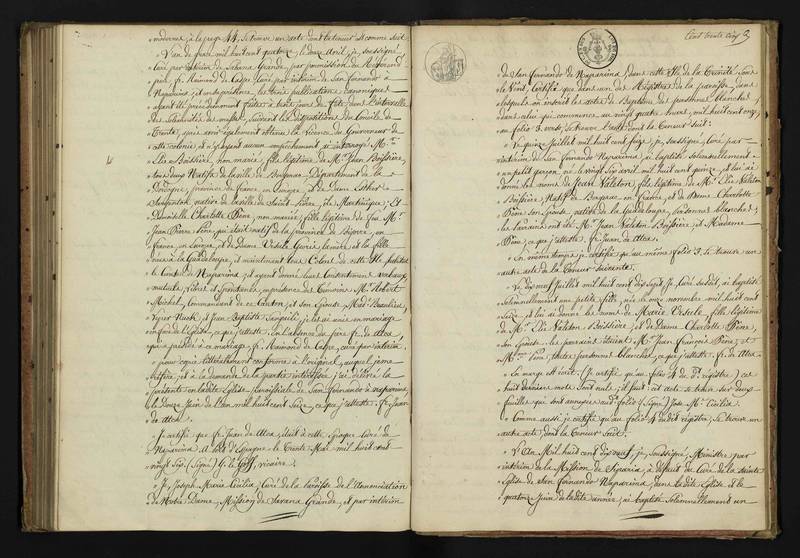 moderne, à la page 44, se trouve un acte dont la teneur est comme suit
L'an de grace mil huit cent quatorze, le douze Avril, je, soussigné,
Curé par intérim de Savana Grande, par permission du Révérend
père fr. Raimond de Caspe, Curé par intérim de San Fernando à
Naparima, et sans préjudice, les trois publications canoniques
ayant été précédemment faites à trois jours de fête, dans l'intervalle
des solennités de messe, suivant les dispositions du Concile de
Trente; après avoir également obtenu la licence du Gouverneur de
cette colonie et n'y ayant aucun empêchement, ai interrogé Mr.
Elie Boissière, non marié, fils légitime de Mr. Jean Boissière,
natif de la ville de Bergerac, Département de la
Dordogne, province de france, en Europe, et de Dame Esther
native de la ville de Saint Pierre, île Martinique; Et
Demoiselle Charlotte Pène, non mariée, fille légitime de feu Mr.
Jean Pierre Pène, qui était natif de la province de en
france, en Europe, et de Dame Ursule la mère et la fille
nées à la Guadeloupe, et maintenant tous Colons de cette île, habitant
le Comté de Naparima; et ayant donné leur consentement verbaux
mutuels, libres et spontanés, en présence des témoins Mr. Robert
Mitchel, Commandant de ce Canton, et son épouse Made. Beaulieu,
et Jean Baptiste je les ai unis en mariage
en face de l'Eglise, ce que j'atteste. en l'absence du père fr. de Alea,
qui a assisté à ce mariage, fr. Raimond de Caspe, curé par intérim.
pour copie littéralement conforme à l'original, auquel je me
réfère, et à la demande de la partie intéressée, j'ai délivré la
présente en ladite Eglise Paroissiale de San Fernando à Naparima,
le douze Juin de l'an mil huit cent seize, ce que j'atteste. fr. Juan
de Alea.
Je certifie que fr. Juan de Alea, était à cette époque Curé de
Naparima. à Port d'Espagne le trente Mai mil huit cent
vingt six. (Signé) G. Le Goff, vicaire.
Je Joseph Marie Cicilia, Curé de la Paroisse de l'Annonciation
de Notre Dame, Mission de Savana Grande, et par intérim
Cent trente cinq 3
de San Fernando de Naparima, dans cette Ile de la Trinité, sous
le Vent, Certifie que dans un des Registres de la Paroisse, dans
lesquels on inscrit les actes de Baptême de personnes blanches,
dans celui qui commence au vingt quatre mars, mil huit cent onze,
au folio 3. verso, se trouve l'acte dont la teneur suit:
Le quinze Juillet mil huit cent seize, je, soussigné, Curé par
intérim de San Fernando Naparima, ai baptisé solennellement
un petit garçon né le vingt six avril mil huit cent quinze, et lui ai
donné les noms de Jean Valeton, fils légitime de Mr. Elie Valeton
Boissière, Natif de Bergerac en france, et de Dame Charlotte
Pène son épouse native de la Guadeloupe, personnes blanches;
les parrains ont été Mr. Jean Valeton Boissière et Madame
Pène; ce que j'atteste. fr. Juan de Alea.
En même temps je certifie qu'au même folio 3. se trouve un
autre acte de la teneur suivante.
Le dix neuf Juillet mil huit cent dix sept, Je Curé susdit, ai baptisé
solennellement une petite fille, née le onze novembre mil huit cent
seize, et lui ai donné les noms de Marie Ursule, fille légitime
de Mr. Elie Valeton Boissière, et de Dame Charlotte Pène,
son épouse, les parrains étaient Mr. Jean François Pène, et
Mme. Pène, toutes personnes blanches, ce que j'atteste. fr. de Alea.
En marge est écrit: (Je certifie qu'au folio 4 du dt. registre) ces
huit derniers mots sont nuls, et suit: cet acte se trouve sur deux
feuilles qui sont annexées audt. folio. (Signé) Jose Ma. Cicilia.
Comme aussi je certifie qu'au folio 4 du dit registre, se trouve un
autre acte, dont la teneur suit.
L'An Mil huit cent dix neuf, je, Soussigné, Ministre par
intérim de la Mission de Siparia, à défaut de Curé de la sainte
Eglise de San Fernando Naparima, dans ladite Eglise et le
quatorze Juin de ladite année, ai baptisé solennellement un